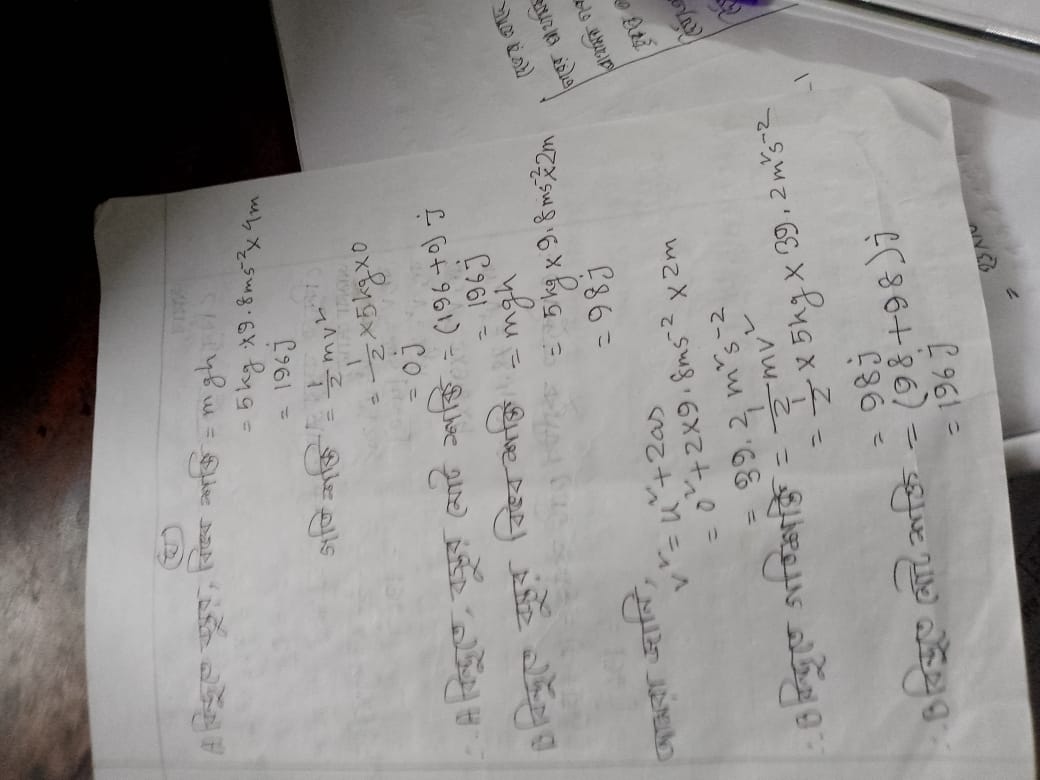 ঘ
A বিন্দুতে বস্তুর, বিভব শক্তি = mgh
= 5kg x 9.8ms-2 x 4m
= 196j
গতি শক্তি = 1/2 mv²
= 1/2 x 5kg x 0
= 0j
∴ A বিন্দুতে বস্তুর মোট শক্তি = (196+0) j
= 196j
B বিন্দুতে বস্তুর বিভব শক্তি = mgh
= 5kg x 9.8ms-2 x 2m
= 98j
আমরা জানি,
v² = u² + 2as
= 0² + 2x9.8ms-2 x 2m
= 39.2 m²s-2
∴ B বিন্দুতে গতিশক্তি = 1/2 mv²
= 1/2 x 5kg x 39.2m²s-2
= 98j
∴ B বিন্দুতে মোট শক্তি = (98+98)j
= 196j